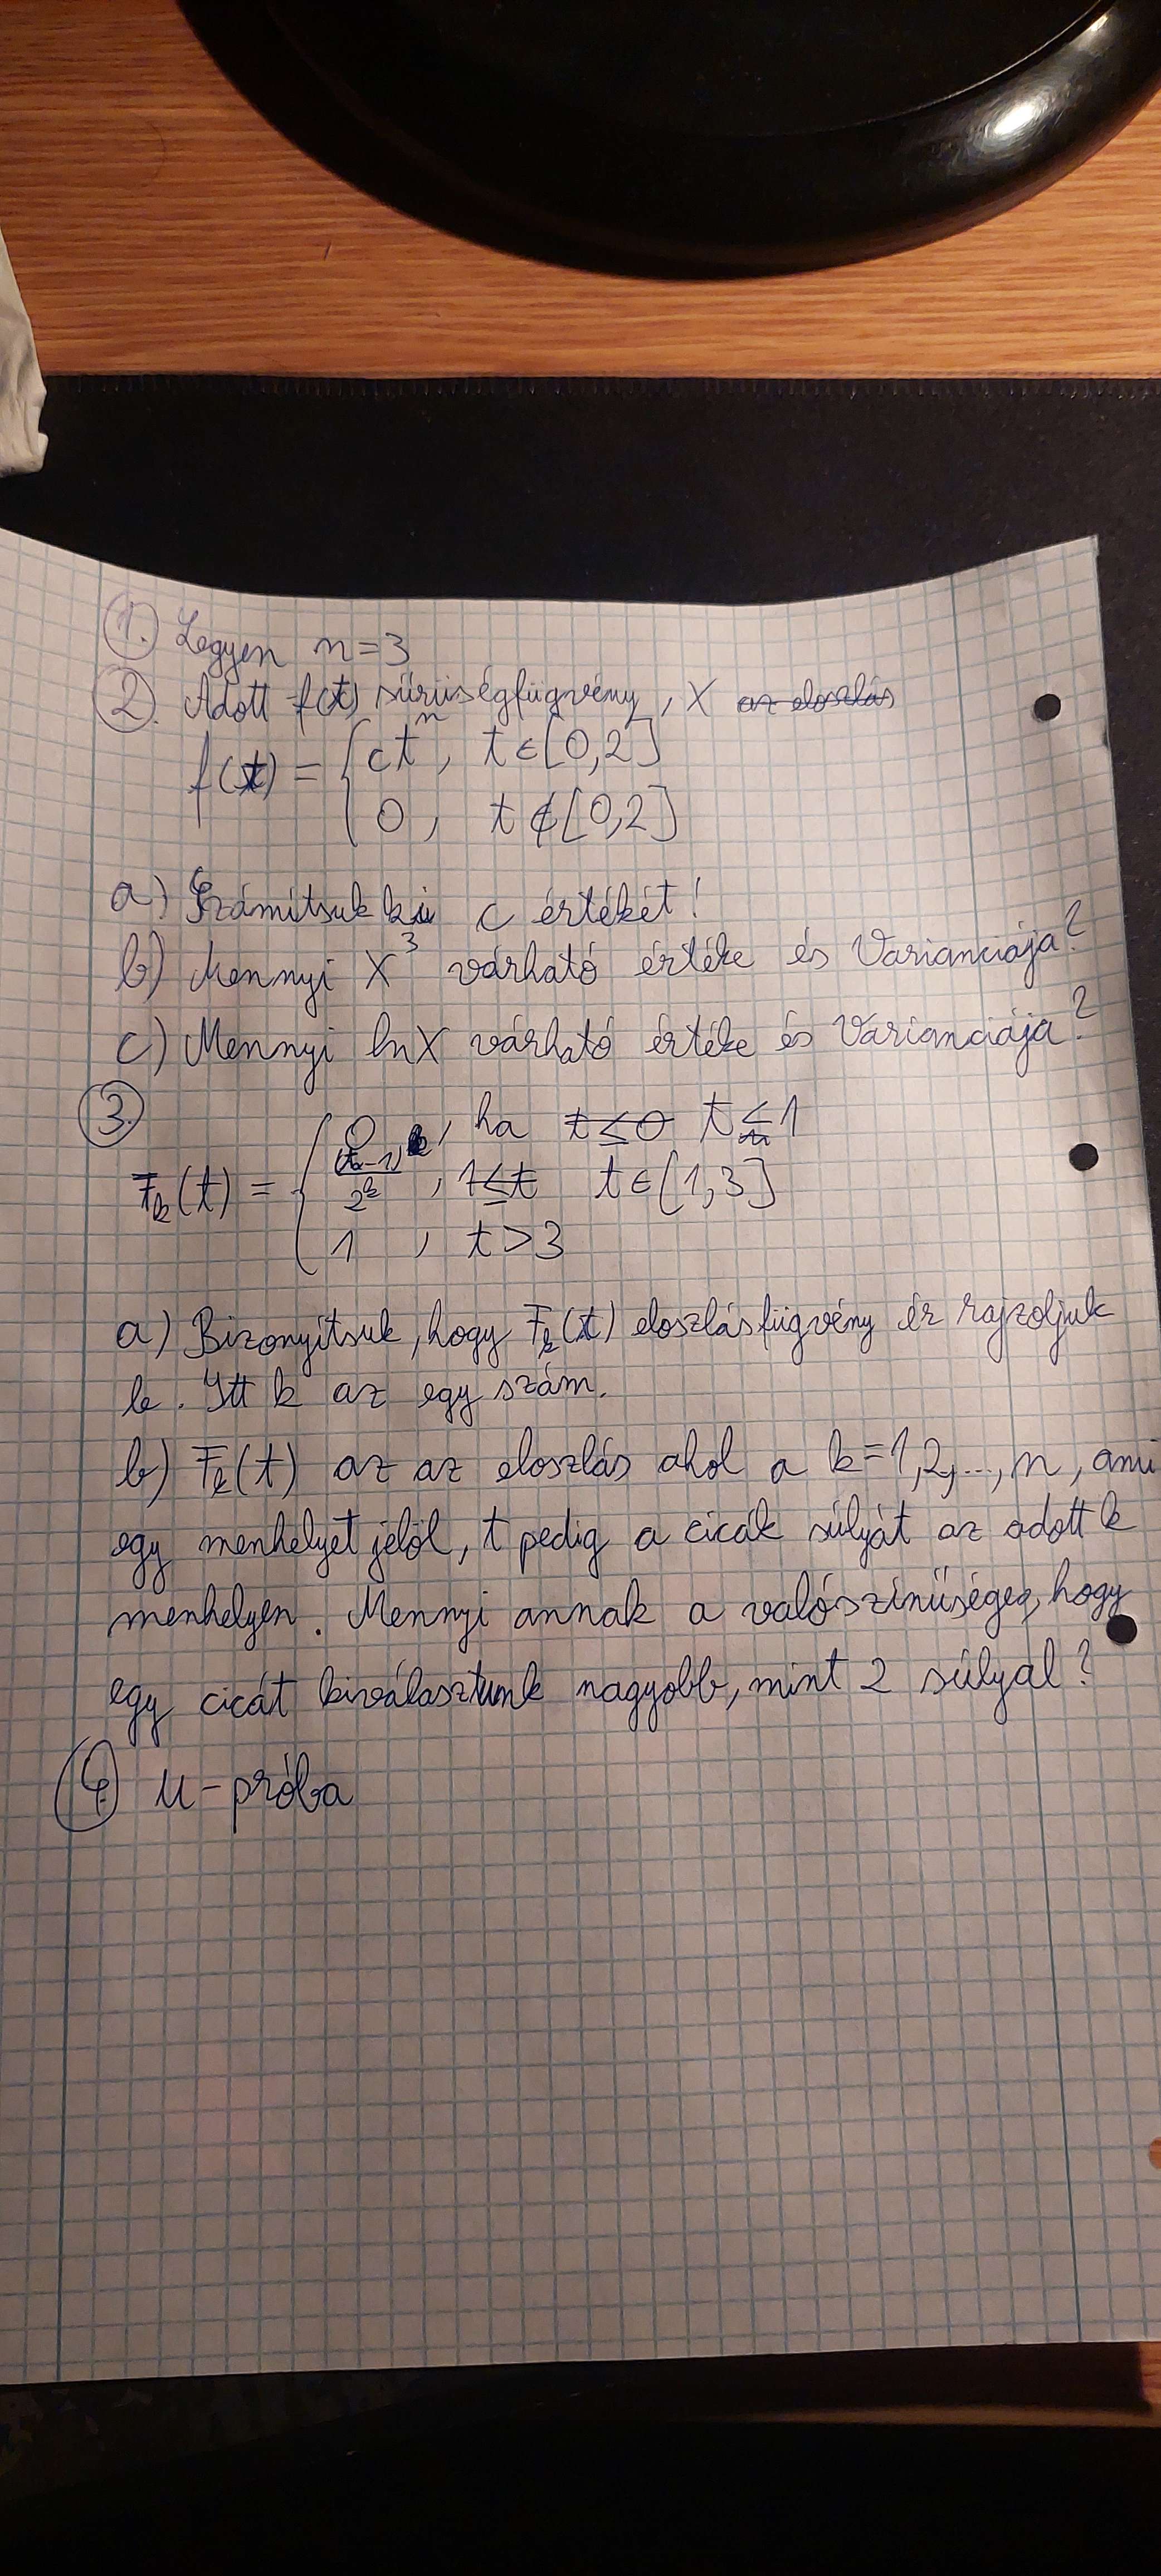 1. Legyen n=3
2. Adott f(t) sűrűségfüggvény, X az eloszlás
f(t) = { ct^n, t∈[0,2]
0, t∉[0,2]
a) Számítsuk ki c értékét!
b) Mennyi X^3 várható értéke és Varianciája?
c) Mennyi ln X várható értéke és Varianciája?
3.
0, ha t≤0 t≤1
F_k(t) = { (t-1)^k/2^k, 1≤t t∈(1,3]
1, t>3
a) Bizonyítsuk, hogy F_k(t) eloszlásfügvény és rajzoljuk
le. Itt k az egy szám.
b) F_k(t) az az eloszlás ahol a k=1,2,...,n, ami
egy menhelyet jelöl, t pedig a cicák súlyát az adott k
menhelyen. Mennyi annak a valószínűsége, hogy
egy cicát kiválasztunk nagyobb, mint 2 súlyal?
4. u-próba